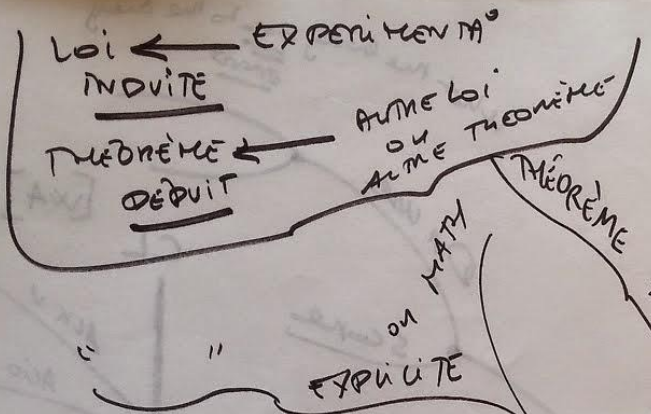 LOI ← EXPERIMENTA°
INDUITE
THÉORÈME ← AUTRE LOI
OU
AUTRE THEORÈME
DÉDUIT
THÉORÈME
OU MATH
" "
EXPLICITE